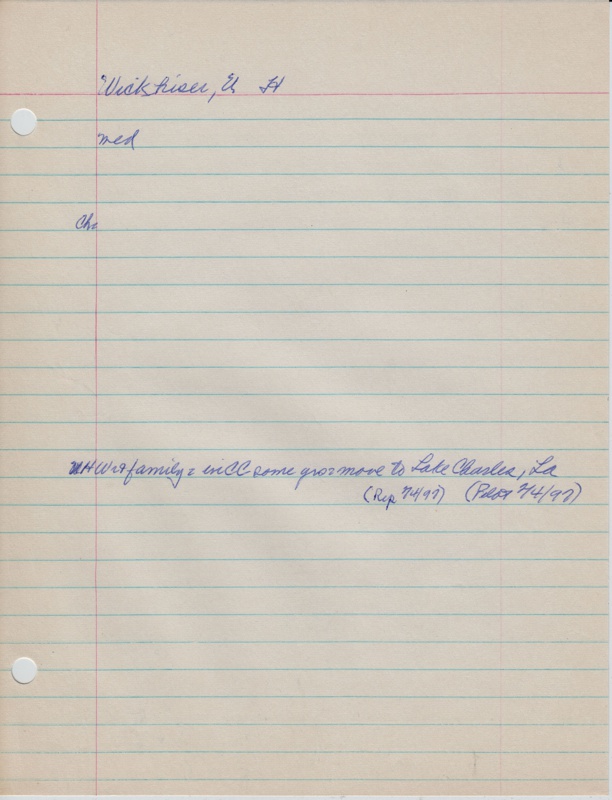 Wickhiser, U H
med
Ch:
UHW & family = in CC some yrs = move to Lake Charles, La
(Rep 2/4/97) (Pilot 2/4/97)